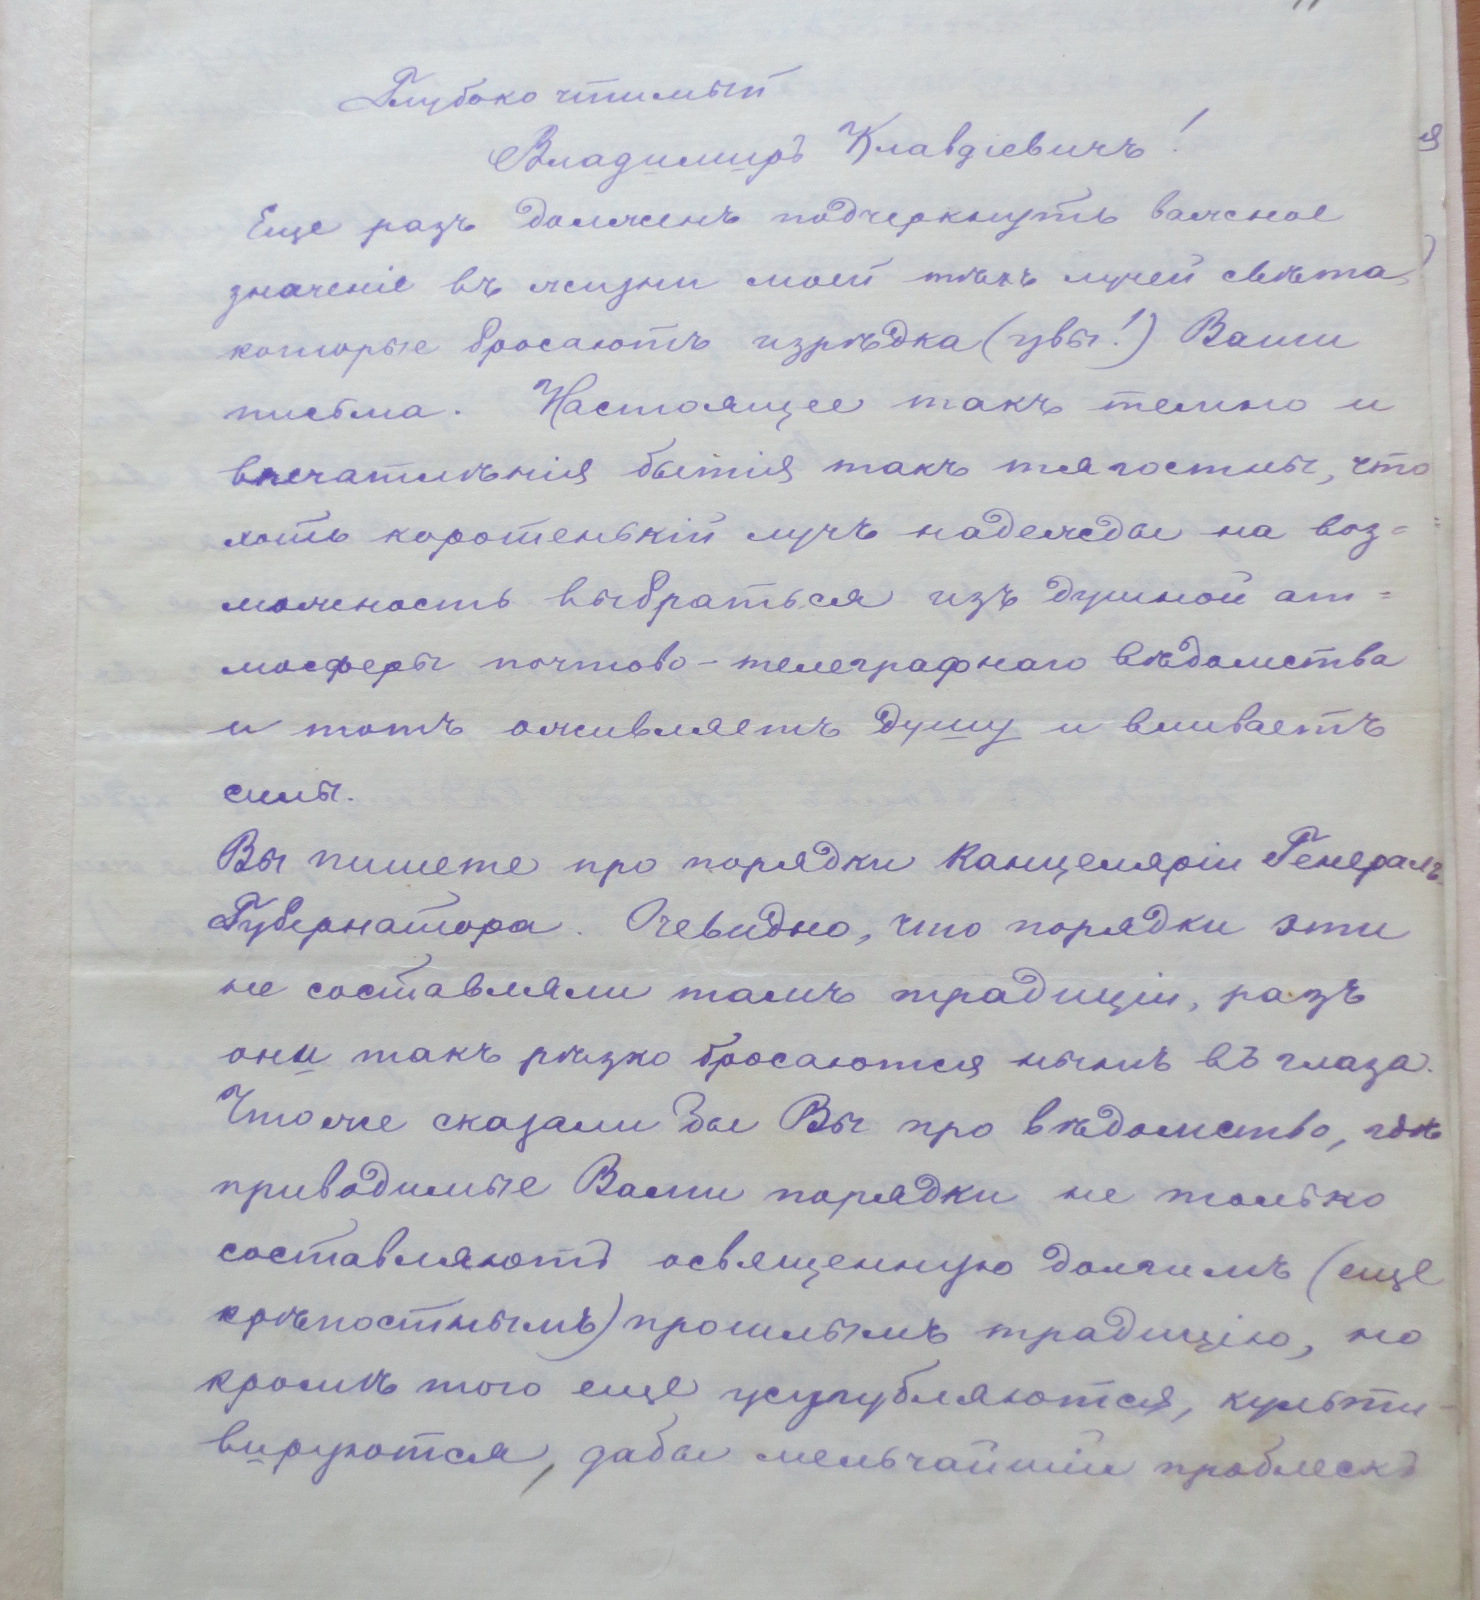 Глубоко чтимый
Владимиръ Клавдіевичъ!
Еще разъ долженъ подчеркнуть важное
значеніе въ жизни моей тѣхъ лучей свѣта,
которые бросаютъ изрѣдка (увы!) Ваши
письма. Настоящее такъ темно и
впечатлѣнія бытія такъ тягостны, что
хоть коротенькій лучъ надежды на воз=
можность выбраться изъ душной ат=
мосферы почтово-телеграфнаго вѣдомства
и тотъ оживляетъ душу и вливаетъ
силы.
Вы пишете про порядки Канцеляріи Генералъ-
Губернатора. Очевидно, что порядки эти
не составляли тамъ традиціи, разъ
они такъ рѣзко бросаются нынѣ въ глаза.
Чтоже сказали бы Вы про вѣдомство, гдѣ
приводимые Вами порядки не только
составляютъ освященную долгимъ (еще
крѣпостнымъ) прошлымъ традицію, но
кромѣ того еще усугубляются, культи-
вируются, дабы мельчайшій проблескъ